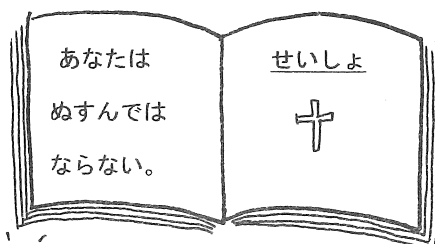 あなたは
ぬすんでは
ならない。
せいしょ